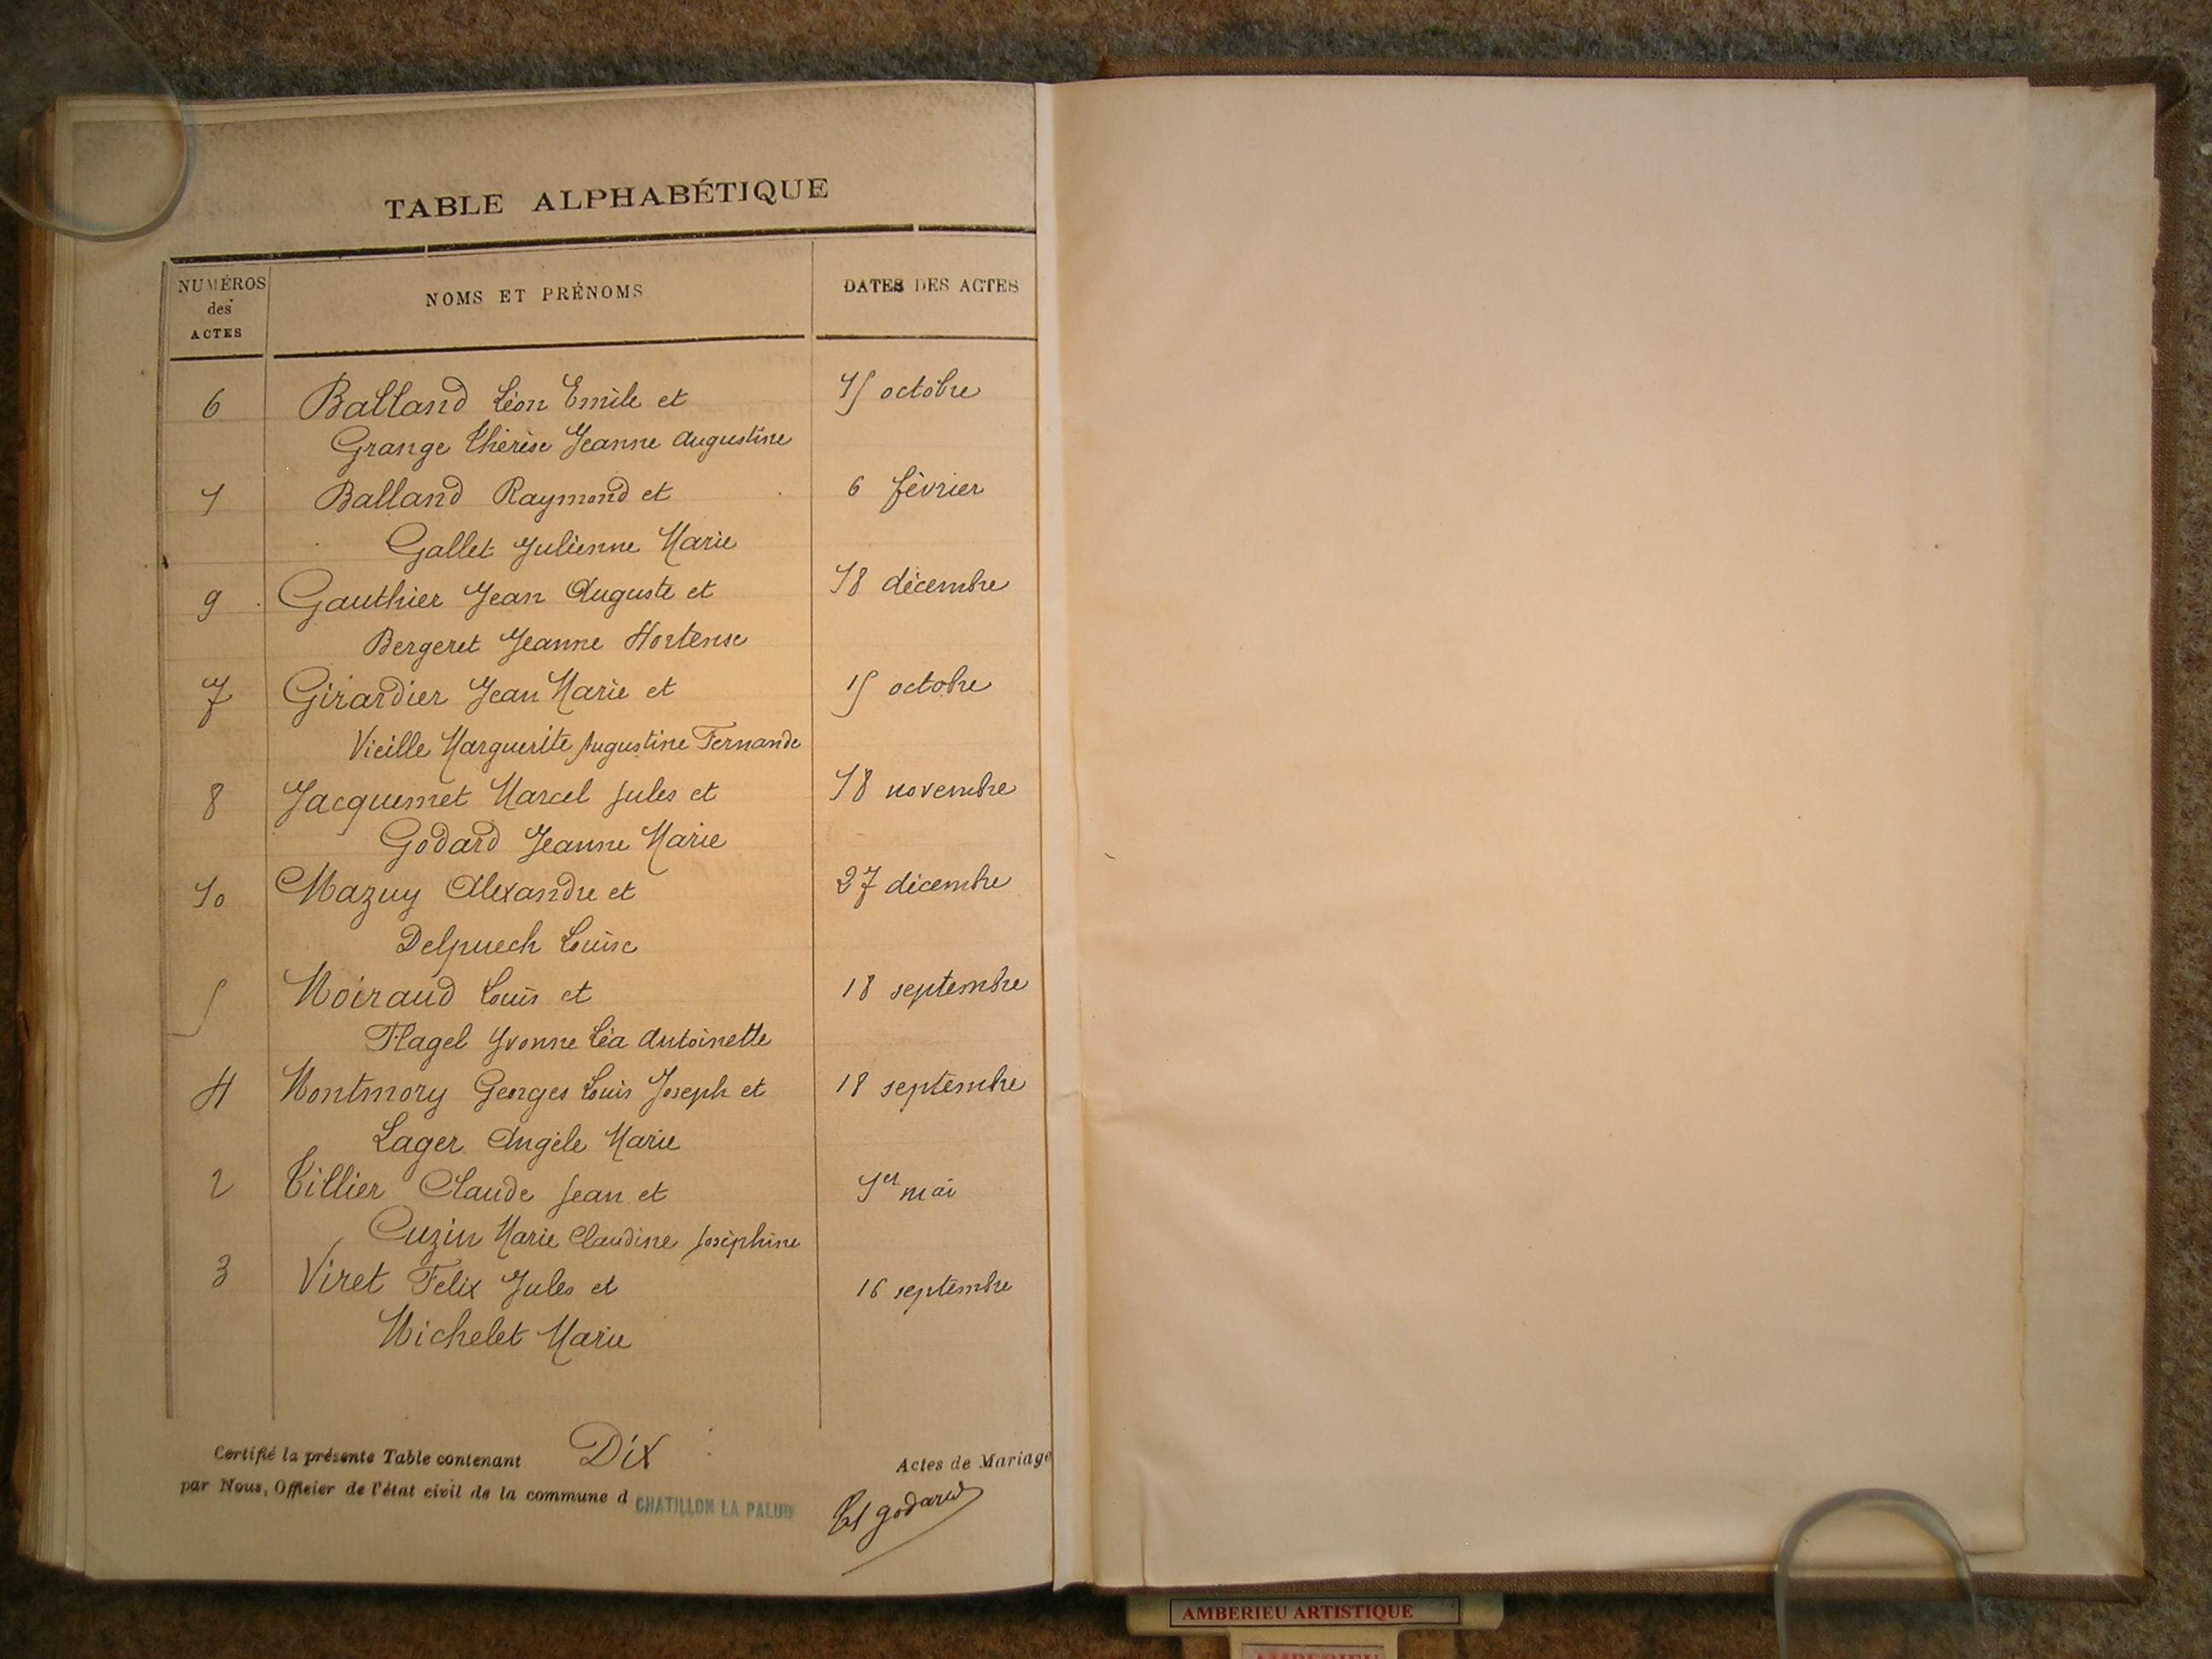 TABLE ALPHABÉTIQUE
NUMÉROS des ACTES NOMS ET PRÉNOMS DATES DES ACTES
6 Balland Léon Emile et 15 octobre
Grange Thérèse Jeanne Augustine
1 Balland Raymond et 6 février
Gallet Julienne Marie
9 Gauthier Jean Auguste et 18 décembre
Bergeret Jeanne Hortense
7 Girardier Jean Marie et 15 octobre
Vieille Marguerite Augustine Fernande
8 Jacquemet Marcel Jules et 18 novembre
Godard Jeanne Marie
10 Mazuy Alexandre et 27 décembre
Delpuech Louise
5 Moiraud Louis et 18 septembre
Flagel Yvonne Léa Antoinette
4 Montmory Georges Louis Joseph et 18 septembre
Lager Angèle Marie
2 Tillier Claude Jean et 1er mai
Cuzin Marie Claudine Joséphine
3 Viret Felix Jules et 16 septembre
Michelet Marie
Certifié la présente Table contenant Dix Actes de Mariage
par Nous, Officier de l'état civil de la commune d CHATILLON LA PALUD
godard
AMBERIEU ARTISTIQUE
AMBERIEU